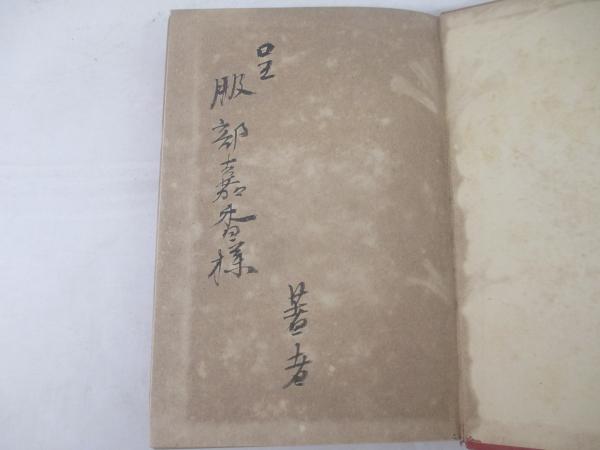 呈
服部嘉香様
著者